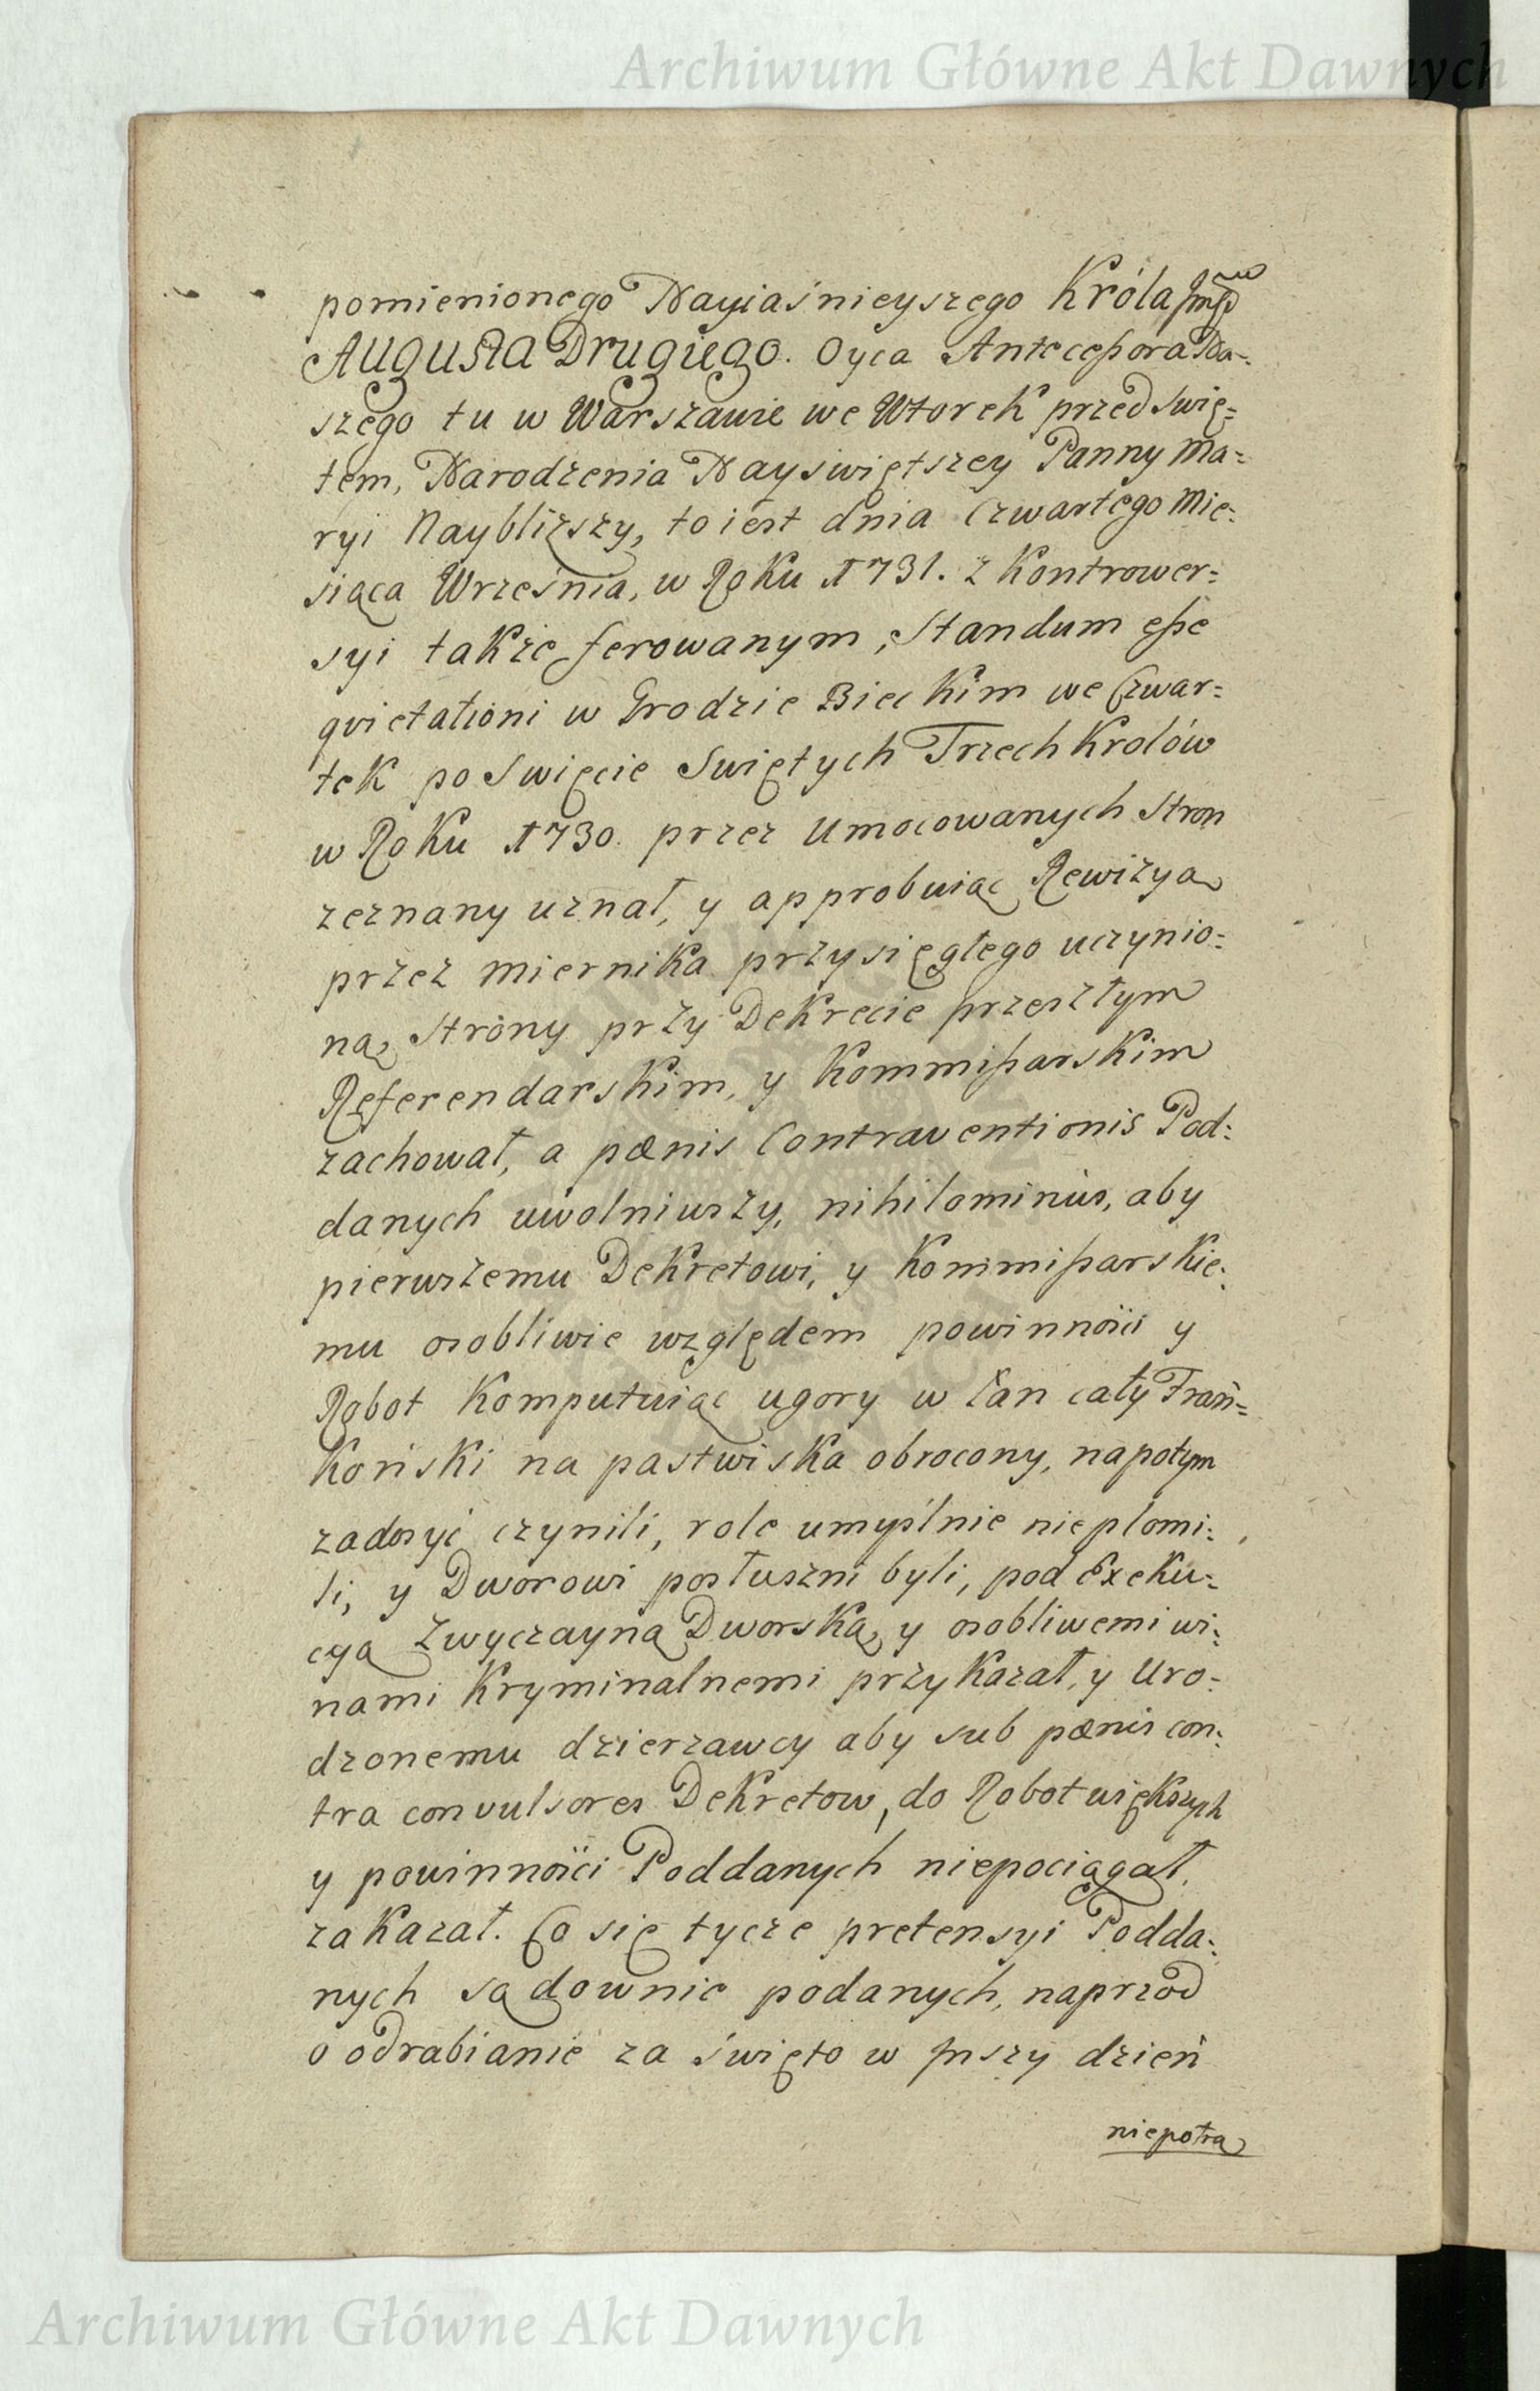 Archiwum Główne Akt Dawnych
pomienionego Nayiaśnieyszego Króla Jmści
Augusta Drugiego. Oyca Antecessora Na=
szego tu w Warszawie we Wtorek przed Swię=
tem, Narodzenia Nayswiętszey Panny Ma=
ryi Naybliższy, to iest dnia Czwartego Mie=
siąca Wrzesnia, w Roku 1731. z Kontrower=
syi także ferowanym, Standum esse
qvietationi w Grodzie Bieckim we Czwar=
tek po Swięcie Swiętych Trzech Krolów
w Roku 1730. przez Umocowanych Stron
zeznany uznał, y approbuiąc Rewizyą
przez Miernika przysięgłego uczynio=
ną, Strony przy Dekrecie przeszłym
Referendarskim, y Kommissarskim
zachował, a pœnis Contraventionis Pod=
danych uwolniwszy, nihilominùs, aby
pierwszemu Dekretowi, y Kommissarskie=
mu osobliwie względem powinności y
Robot Komputuiąc ugory w Łan cały Fran=
koński na pastwiska obrocony, napotym
zadosyć czynili, role umyślnie nieplomi=
li, y Dworowi posłuszni byli, pod Exeku=
cyą Zwyczayną Dworską, y osobliwemi wi=
nami Kryminalnemi przykazał, y Uro=
dzonemu dzierzawcy aby sub pœnis con=
tra convulsores Dekretow, do Robot większych
y powinności Poddanych niepociągał,
zakazał. Co się tycze pretensyi Podda=
nych sądownie podanych, naprzod
o odrabianie za święto w Jnszy dzień
niepotrą
Archiwum Główne Akt Dawnych